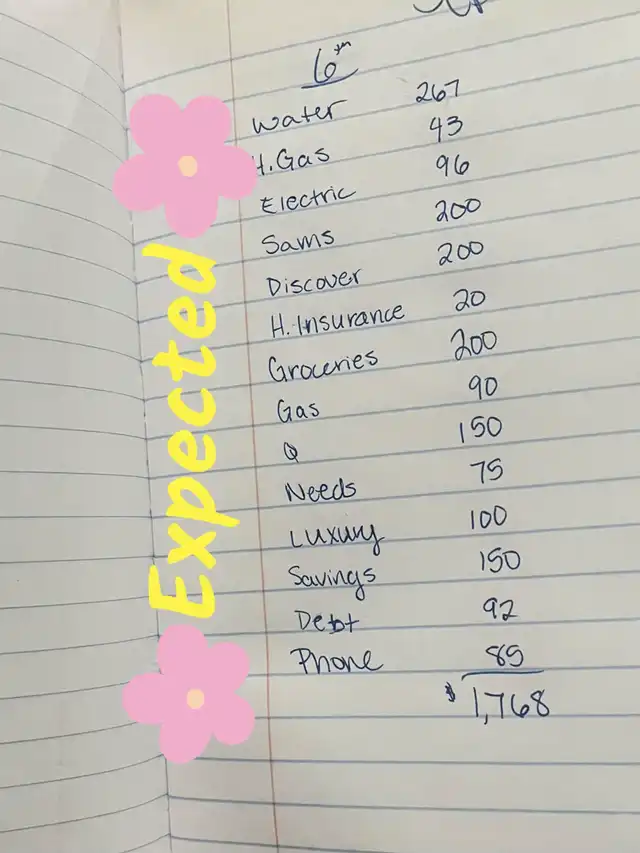 6th
Water 267
H.Gas 43
Electric 96
Sams 200
Discover 200
H.Insurance 20
Groceries 200
Gas 90
Q 150
Needs 75
Luxury 100
Savings 150
Debt 92
Phone 85
$1,768
Expected